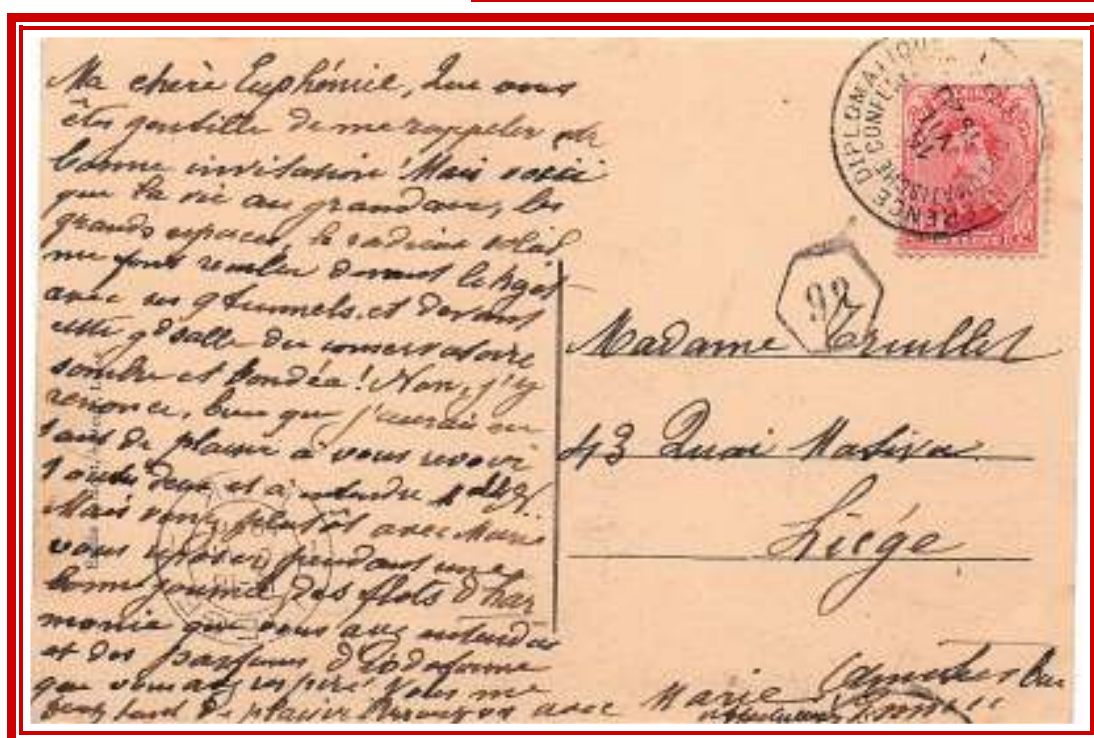 Ma chère Euphémie, Que vous
êtes gentille de me rappeler votre
bonne invitation! Mais voici
que la vie au grand air, les
grands espaces, le radieux soleil
me font reculer devant le trajet
avec ses 9 tunnels, et devant
cette gde salle du conservatoire
sombre et bondée! Non, j'y
renonce, bien que j'aurais eu
tant de plaisir à vous revoir
toutes deux et à entendre
Mais venez plutôt avec Marie
vous reposer pendant une
bonne journée des flots d'har
monie que vous avez entendus
et des parfums d'iodoforme
que vous avez respiré. Vous me
feriez tant de plaisir avec Marie
CONFERENCE DIPLOMATIQUE
92
Madame Truillet
43 Quai Mativa
Liége